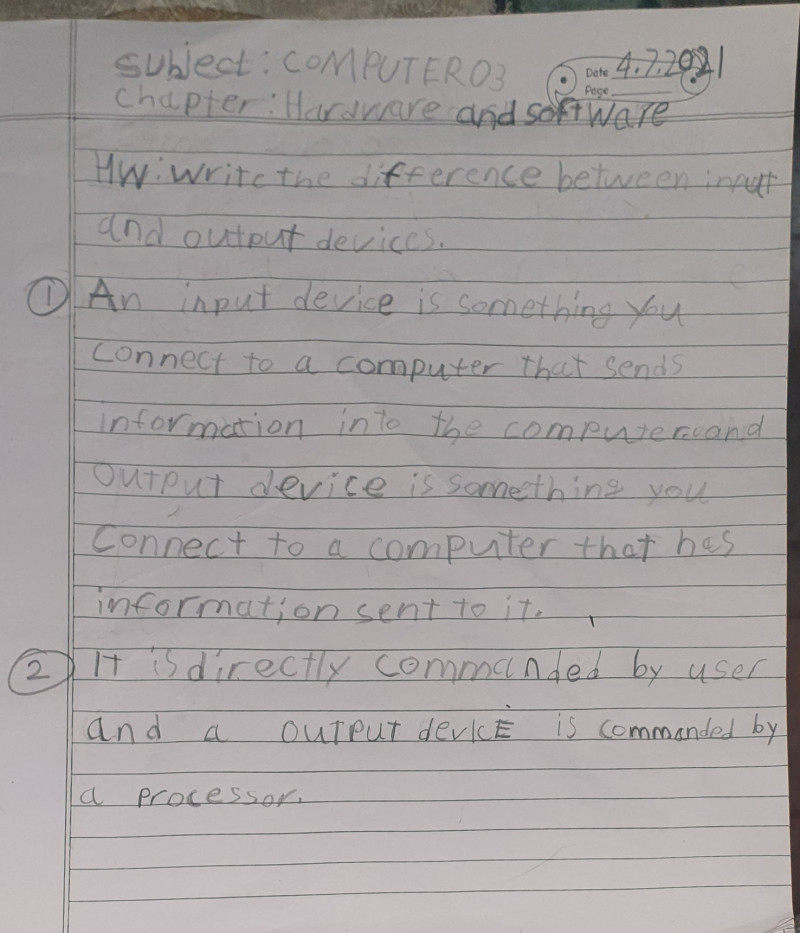 Subject: COMPUTER 03
Date 4.7.2021
Chapter: Hardware and software
Page
HW: Write the difference between input
and output devices.
① An input device is something you
connect to a computer that sends
information into the computer. and
output device is something you
connect to a computer that has
information sent to it.
② It is directly commanded by user
and a output device is commanded by
a processor.